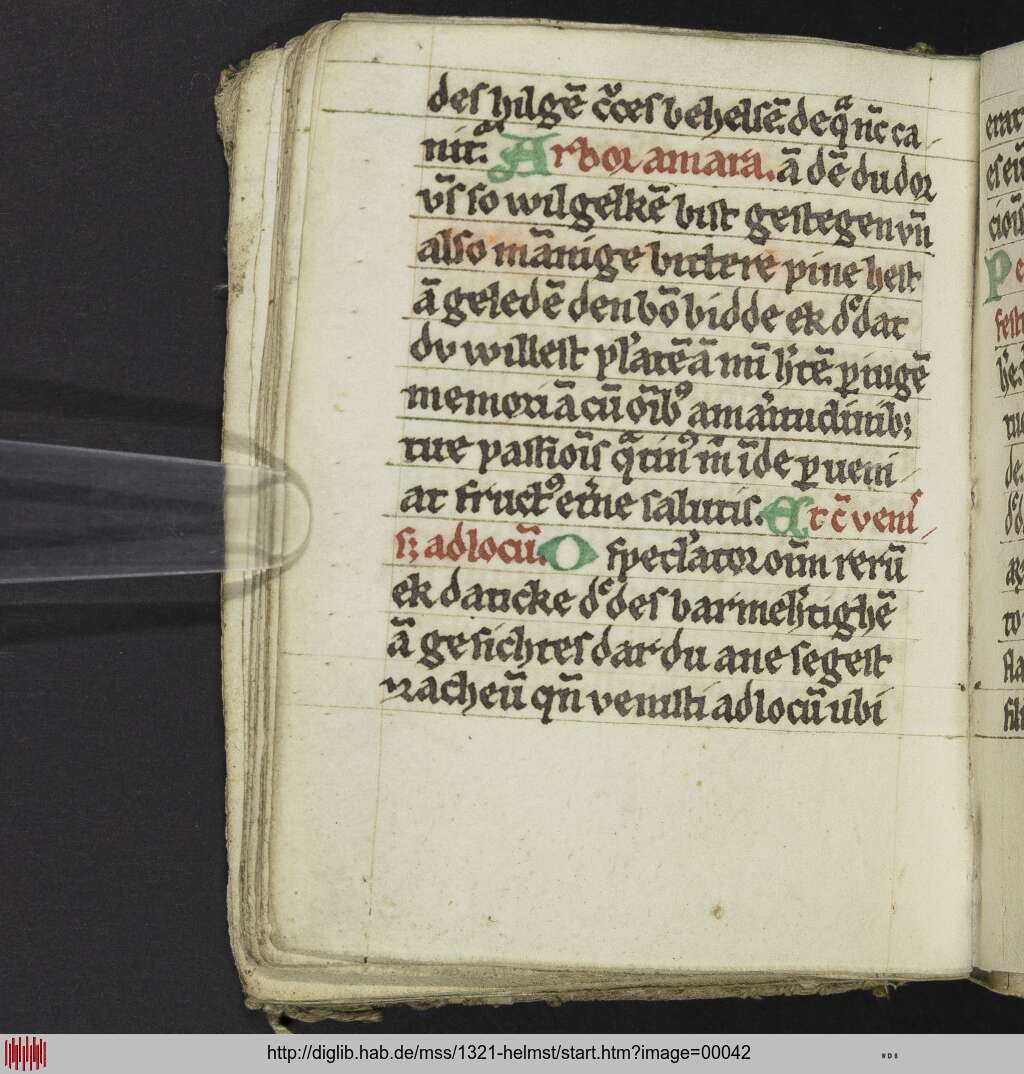 des hilgē c͛ces behelsē. de qͣ nc̄ ca
nitͬ. Arbor amara. ā dē du dor
vn̄s so wilgelkē bist gestegen vn̄
also mānige bittere pine hest
ā geledē den bō bidde ek dͨ dat
du willest plˀātē ā mī hˀtē. ꝑ iugē
memoriā cū oībꝰ amaˀitudinibꝫ
tue passiōīs qͣtinꝰ m̄ īde ꝑueni
at fructꝰ etˀne salutis. Et c̄ venˀi
sꝫ ad locū. O speclˀator oīm rerū
ek dancke dͨ des barmehˀtighē
ā gesichtes dar du ane segest
racheū qn̄ venisti ad locū ubi
erat
es eū
ciōīs
Pe
fest
http://diglib.hab.de/mss/1321-helmst/start.htm?image=00042